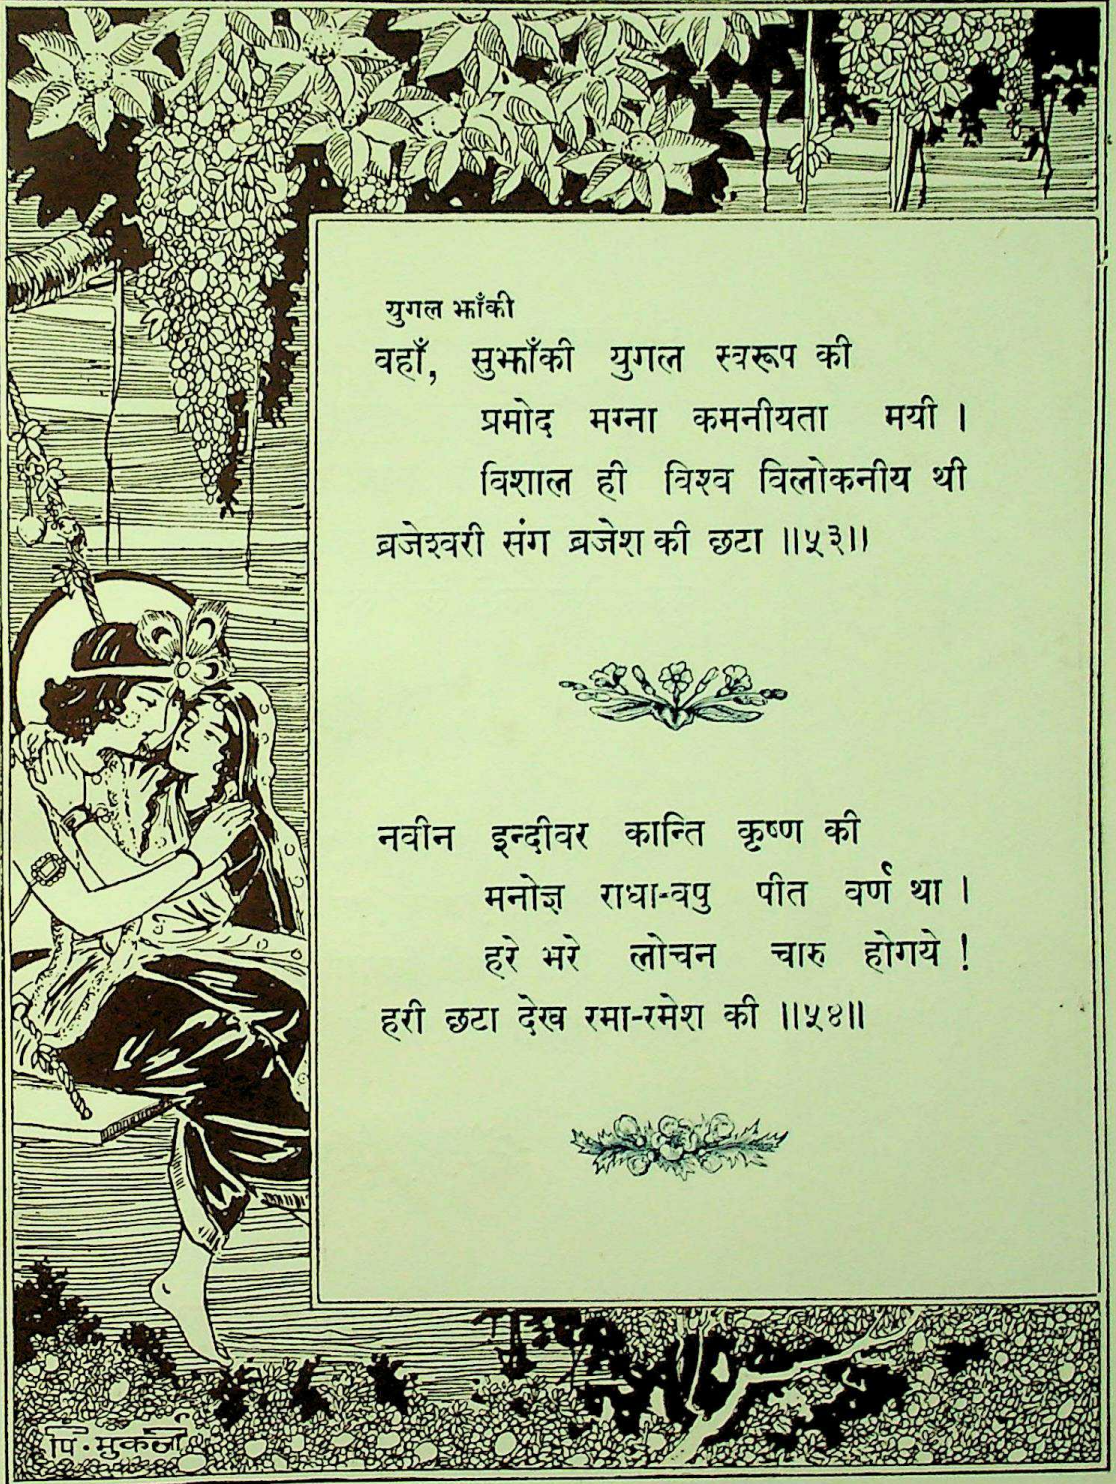 युगल झाँकी
वहाँ, सुझाँकी युगल स्वरूप की
प्रमोद मग्ना कमनीयता मयी ।
विशाल ही विश्व विलोकनीय थी
ब्रजेश्वरी संग ब्रजेश की छटा ॥५३॥
नवीन इन्दीवर कान्ति कृष्ण की
मनोज्ञ राधा-वपु पीत वर्ण था ।
हरे भरे लोचन चारु होगये !
हरी छटा देख रमा-रमेश की ॥५४॥
पि. मुकर्जी